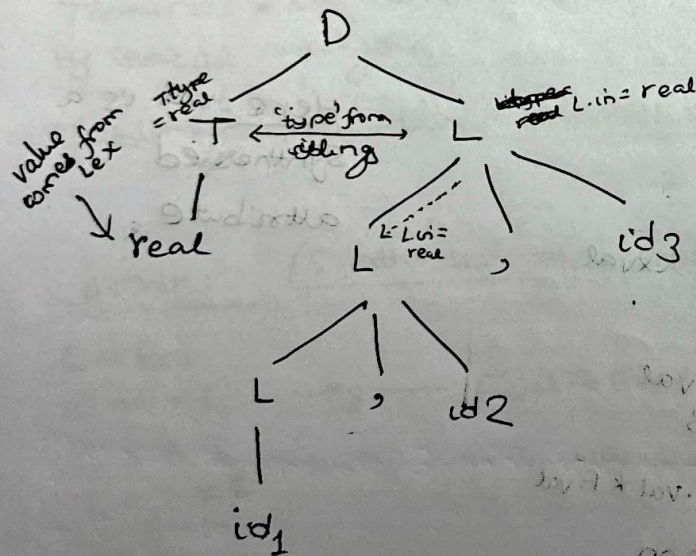 D
T.type
= real
T
'type' from
sibling
L
L.in = real
value
comes from
Lex
real
L
L.in =
real
,
id3
L
,
id2
id1